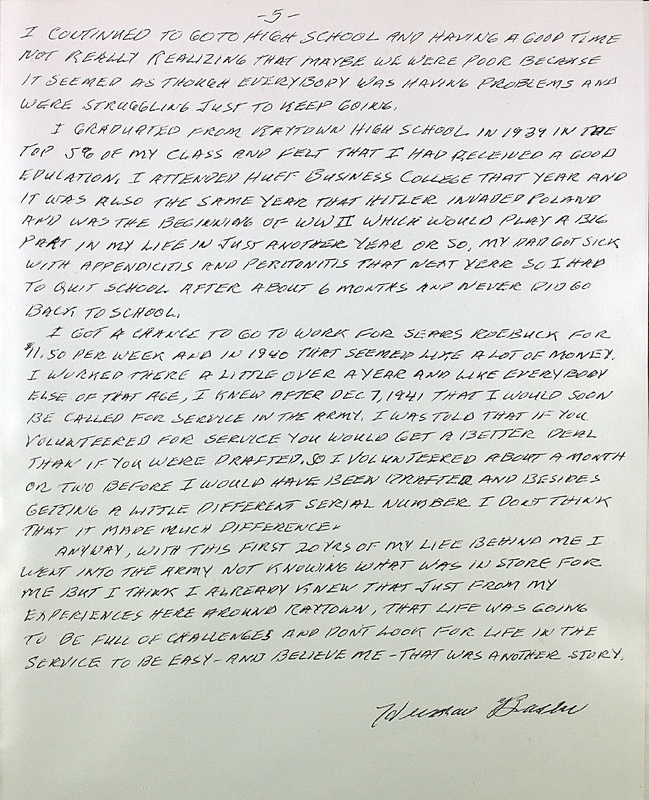 -5-
I CONTINUED TO GO TO HIGH SCHOOL AND HAVING A GOOD TIME
NOT REALLY REALIZING THAT MAYBE WE WERE POOR BECAUSE
IT SEEMED AS THOUGH EVERYBODY WAS HAVING PROBLEMS AND
WERE STRUGGLING JUST TO KEEP GOING.
I GRADUATED FROM RAYTOWN HIGH SCHOOL IN 1939 IN THE
TOP 5% OF MY CLASS AND FELT THAT I HAD RECEIVED A GOOD
EDUCATION. I ATTENDED HUFF BUSINESS COLLEGE THAT YEAR AND
IT WAS ALSO THE SAME YEAR THAT HITLER INVADED POLAND
AND WAS THE BEGINNING OF WW II WHICH WOULD PLAY A BIG
PART IN MY LIFE IN JUST ANOTHER YEAR OR SO, MY DAD GOT SICK
WITH APPENDICITIS AND PERITONITIS THAT NEXT YEAR SO I HAD
TO QUIT SCHOOL AFTER ABOUT 6 MONTHS AND NEVER DID GO
BACK TO SCHOOL.
I GOT A CHANCE TO GO TO WORK FOR SEARS ROEBUCK FOR
$11.50 PER WEEK AND IN 1940 THAT SEEMED LIKE A LOT OF MONEY.
I WORKED THERE A LITTLE OVER A YEAR AND LIKE EVERYBODY
ELSE OF THAT AGE, I KNEW AFTER DEC 7, 1941 THAT I WOULD SOON
BE CALLED FOR SERVICE IN THE ARMY. I WAS TOLD THAT IF YOU
VOLUNTEERED FOR SERVICE YOU WOULD GET A BETTER DEAL
THAN IF YOU WERE DRAFTED. SO I VOLUNTEERED ABOUT A MONTH
OR TWO BEFORE I WOULD HAVE BEEN DRAFTED AND BESIDES
GETTING A LITTLE DIFFERENT SERIAL NUMBER I DON'T THINK
THAT IT MADE MUCH DIFFERENCE.
ANYWAY, WITH THIS FIRST 20 YRS OF MY LIFE BEHIND ME I
WENT INTO THE ARMY NOT KNOWING WHAT WAS IN STORE FOR
ME BUT I THINK I ALREADY KNEW THAT JUST FROM MY
EXPERIENCES HERE AROUND RAYTOWN, THAT LIFE WAS GOING
TO BE FULL OF CHALLENGES AND DON'T LOOK FOR LIFE IN THE
SERVICE TO BE EASY - AND BELIEVE ME - THAT WAS ANOTHER STORY.